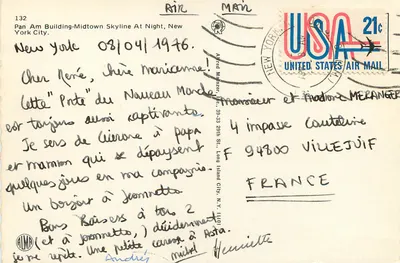 AIR MAIL
132
Pan Am Building-Midtown Skyline At Night, New
York City.
New York 08/04/1976.
Cher René, chère Maricienne!
Cette "Porte" du Nouveau Monde
est toujours aussi captivante
Je sers de Cicerone à Papa
et maman qui se dépaysent
quelques jours en ma compagnie.
Un bonjour à Jeannette
Bons Baisers à tous 2
(et à Jeannette,) décidemment
je me répète. Une petite caresse à Asta.
Andrée Michel Henriette
Alfred Mainzer, Inc. 39-33 29th St., Long Island City, N. Y. 11101
AM
NEW YORK
USA 21¢
UNITED STATES AIR MAIL
Monsieur et Madame MERANGER
4 impasse
F 94800 VILLEJUIF
FRANCE